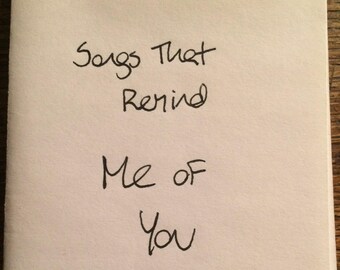 Songs That
Remind
Me of
You